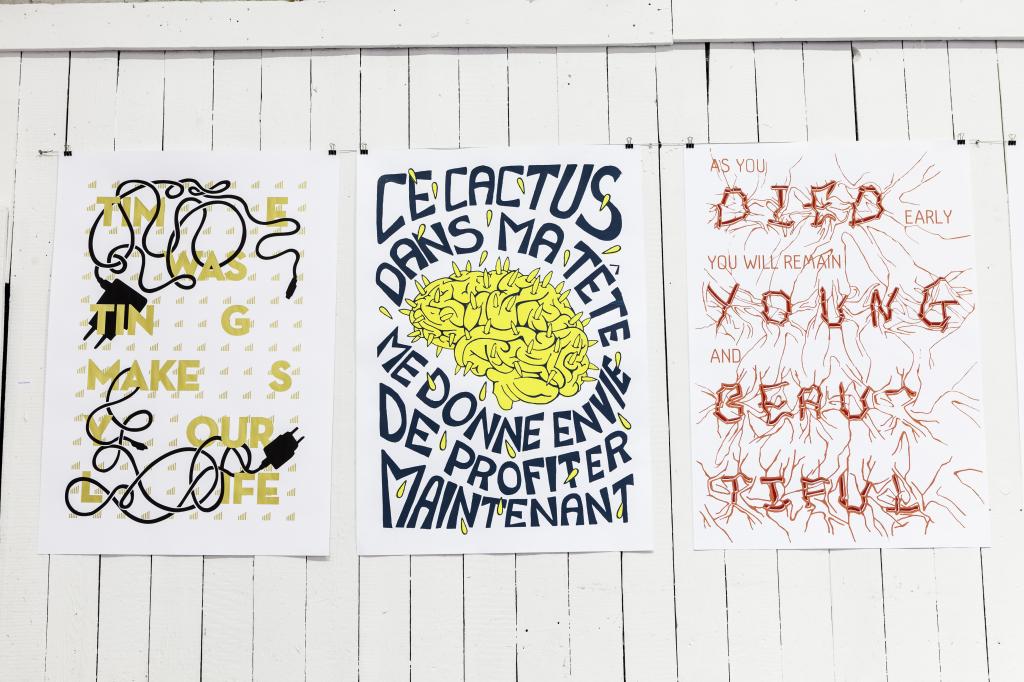 TIM E
WAS
TIN G
MAKE S
Y OUR
L IFE
CE CACTUS
DANS MA TÊTE
ME DONNE ENVIE
DE PROFITER
MAINTENANT
AS YOU
DIED EARLY
YOU WILL REMAIN
YOUNG
AND
BEAU-
TIFUL